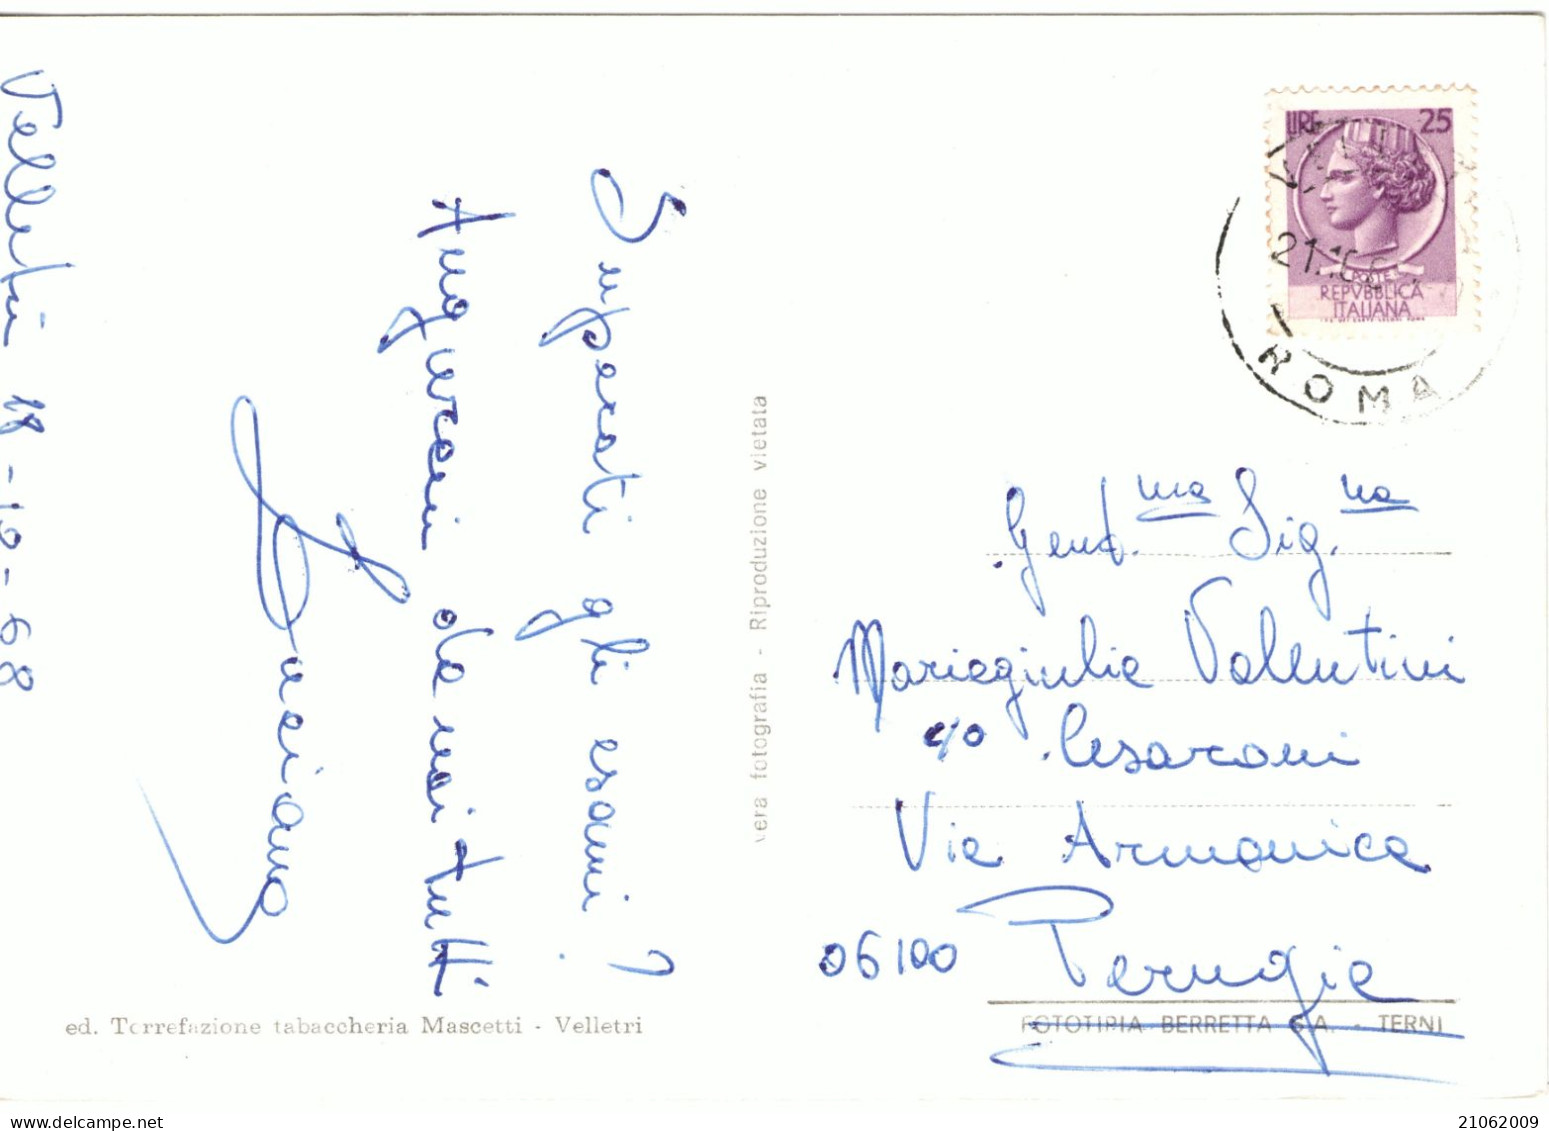 Velletri 18-10-68
Superati gli esami?
Auguroni da noi tutti
Luciano
ed. Torrefazione tabaccheria Mascetti - Velletri
vera fotografia - Riproduzione vietata
LIRE 25
POSTE
REPVBBLICA
ITALIANA
ROMA
Gent.ma Sig.na
Mariagiulia Valentini
c/o Cesaroni
Via Armonica
06100 Perugia
FOTOTIPIA BERRETTA S.A. - TERNI
21062009